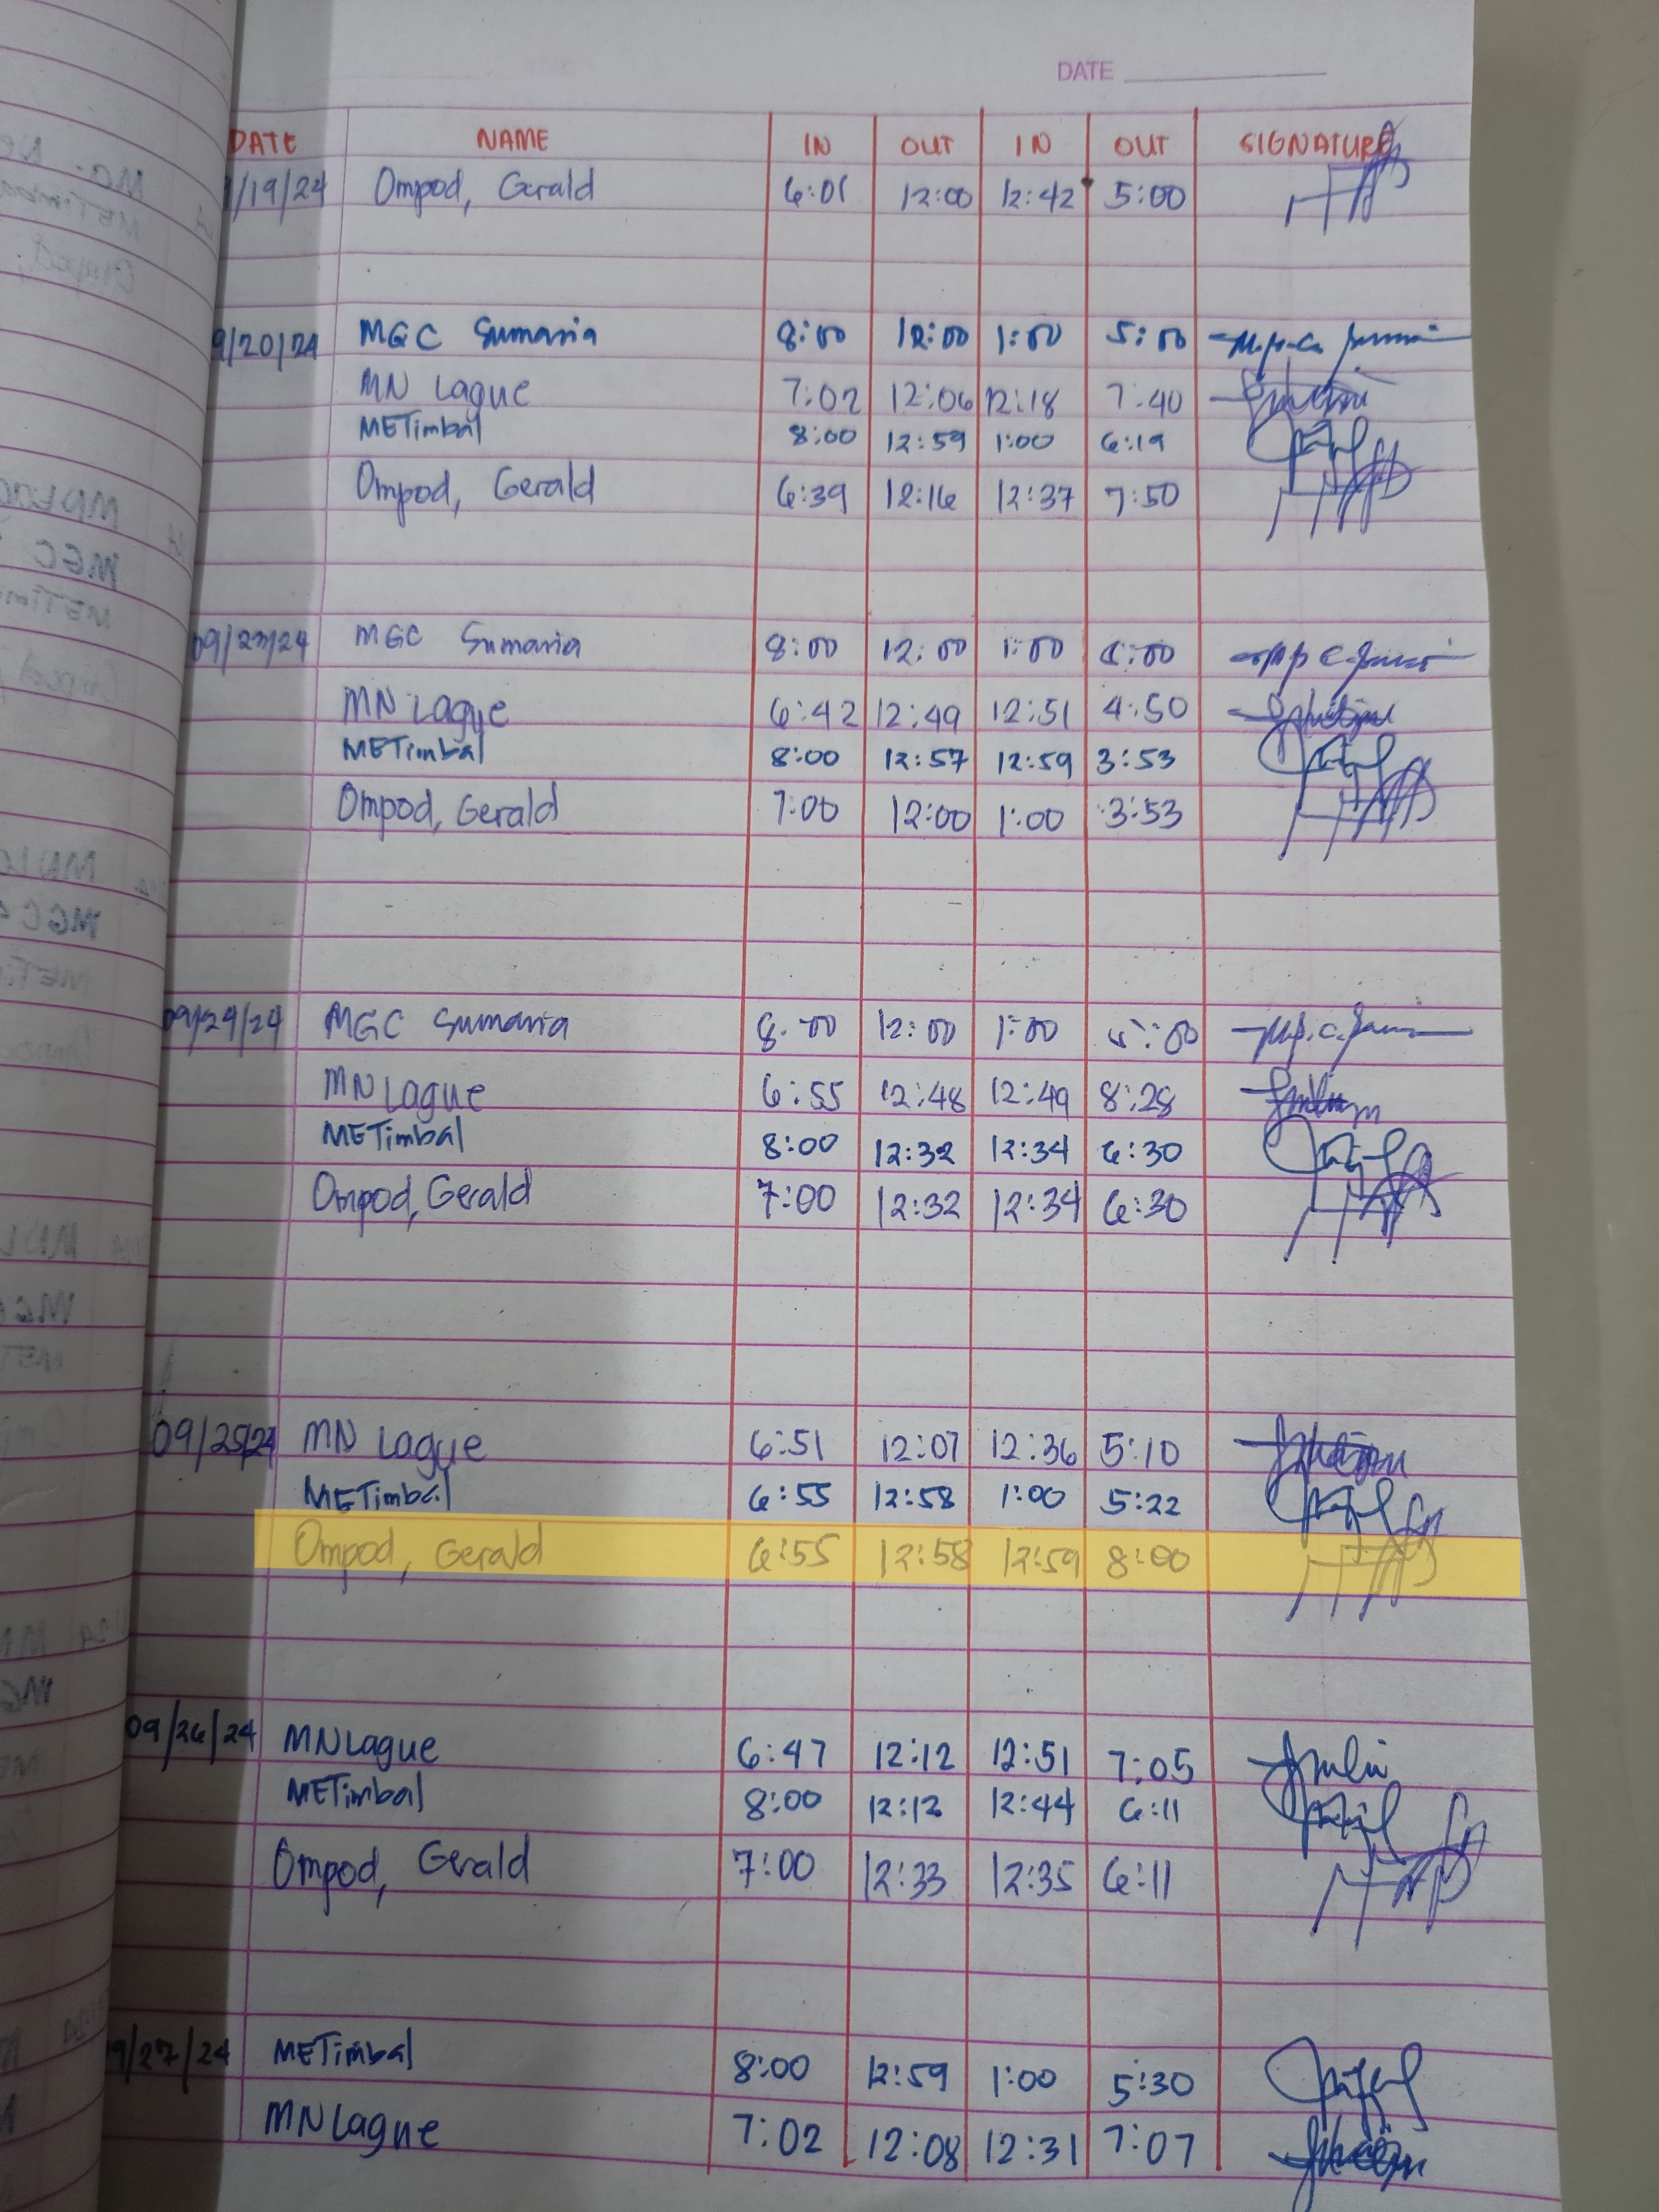 DATE
DATE NAME IN OUT IN OUT SIGNATURE
/19/24 Ompod, Gerald 6:01 12:00 12:42 5:00
9/20/24 MGC Sumaria 8:00 12:00 1:00 5:00
MN Lague 7:02 12:06 12:18 7:40
METimbal 8:00 12:59 1:00 6:19
Ompod, Gerald 6:39 12:16 12:37 7:50
09/23/24 MGC Sumaria 8:00 12:00 1:00 5:00
MN Lague 6:42 12:49 12:51 4:50
METimbal 8:00 12:57 12:59 3:53
Ompod, Gerald 7:00 12:00 1:00 3:53
09/24/24 MGC Sumaria 8:00 12:00 1:00 5:00
MN Lague 6:55 12:48 12:49 8:28
METimbal 8:00 12:32 12:34 6:30
Ompod, Gerald 7:00 12:32 12:34 6:30
09/25/24 MN Lague 6:51 12:07 12:36 5:10
METimbal 6:55 12:58 1:00 5:22
Ompod, Gerald 6:55 12:58 12:59 8:00
09/26/24 MN Lague 6:47 12:12 12:51 7:05
METimbal 8:00 12:12 12:44 6:11
Ompod, Gerald 7:00 12:33 12:35 6:11
9/27/24 METimbal 8:00 12:59 1:00 5:30
MN Lague 7:02 12:08 12:31 7:07